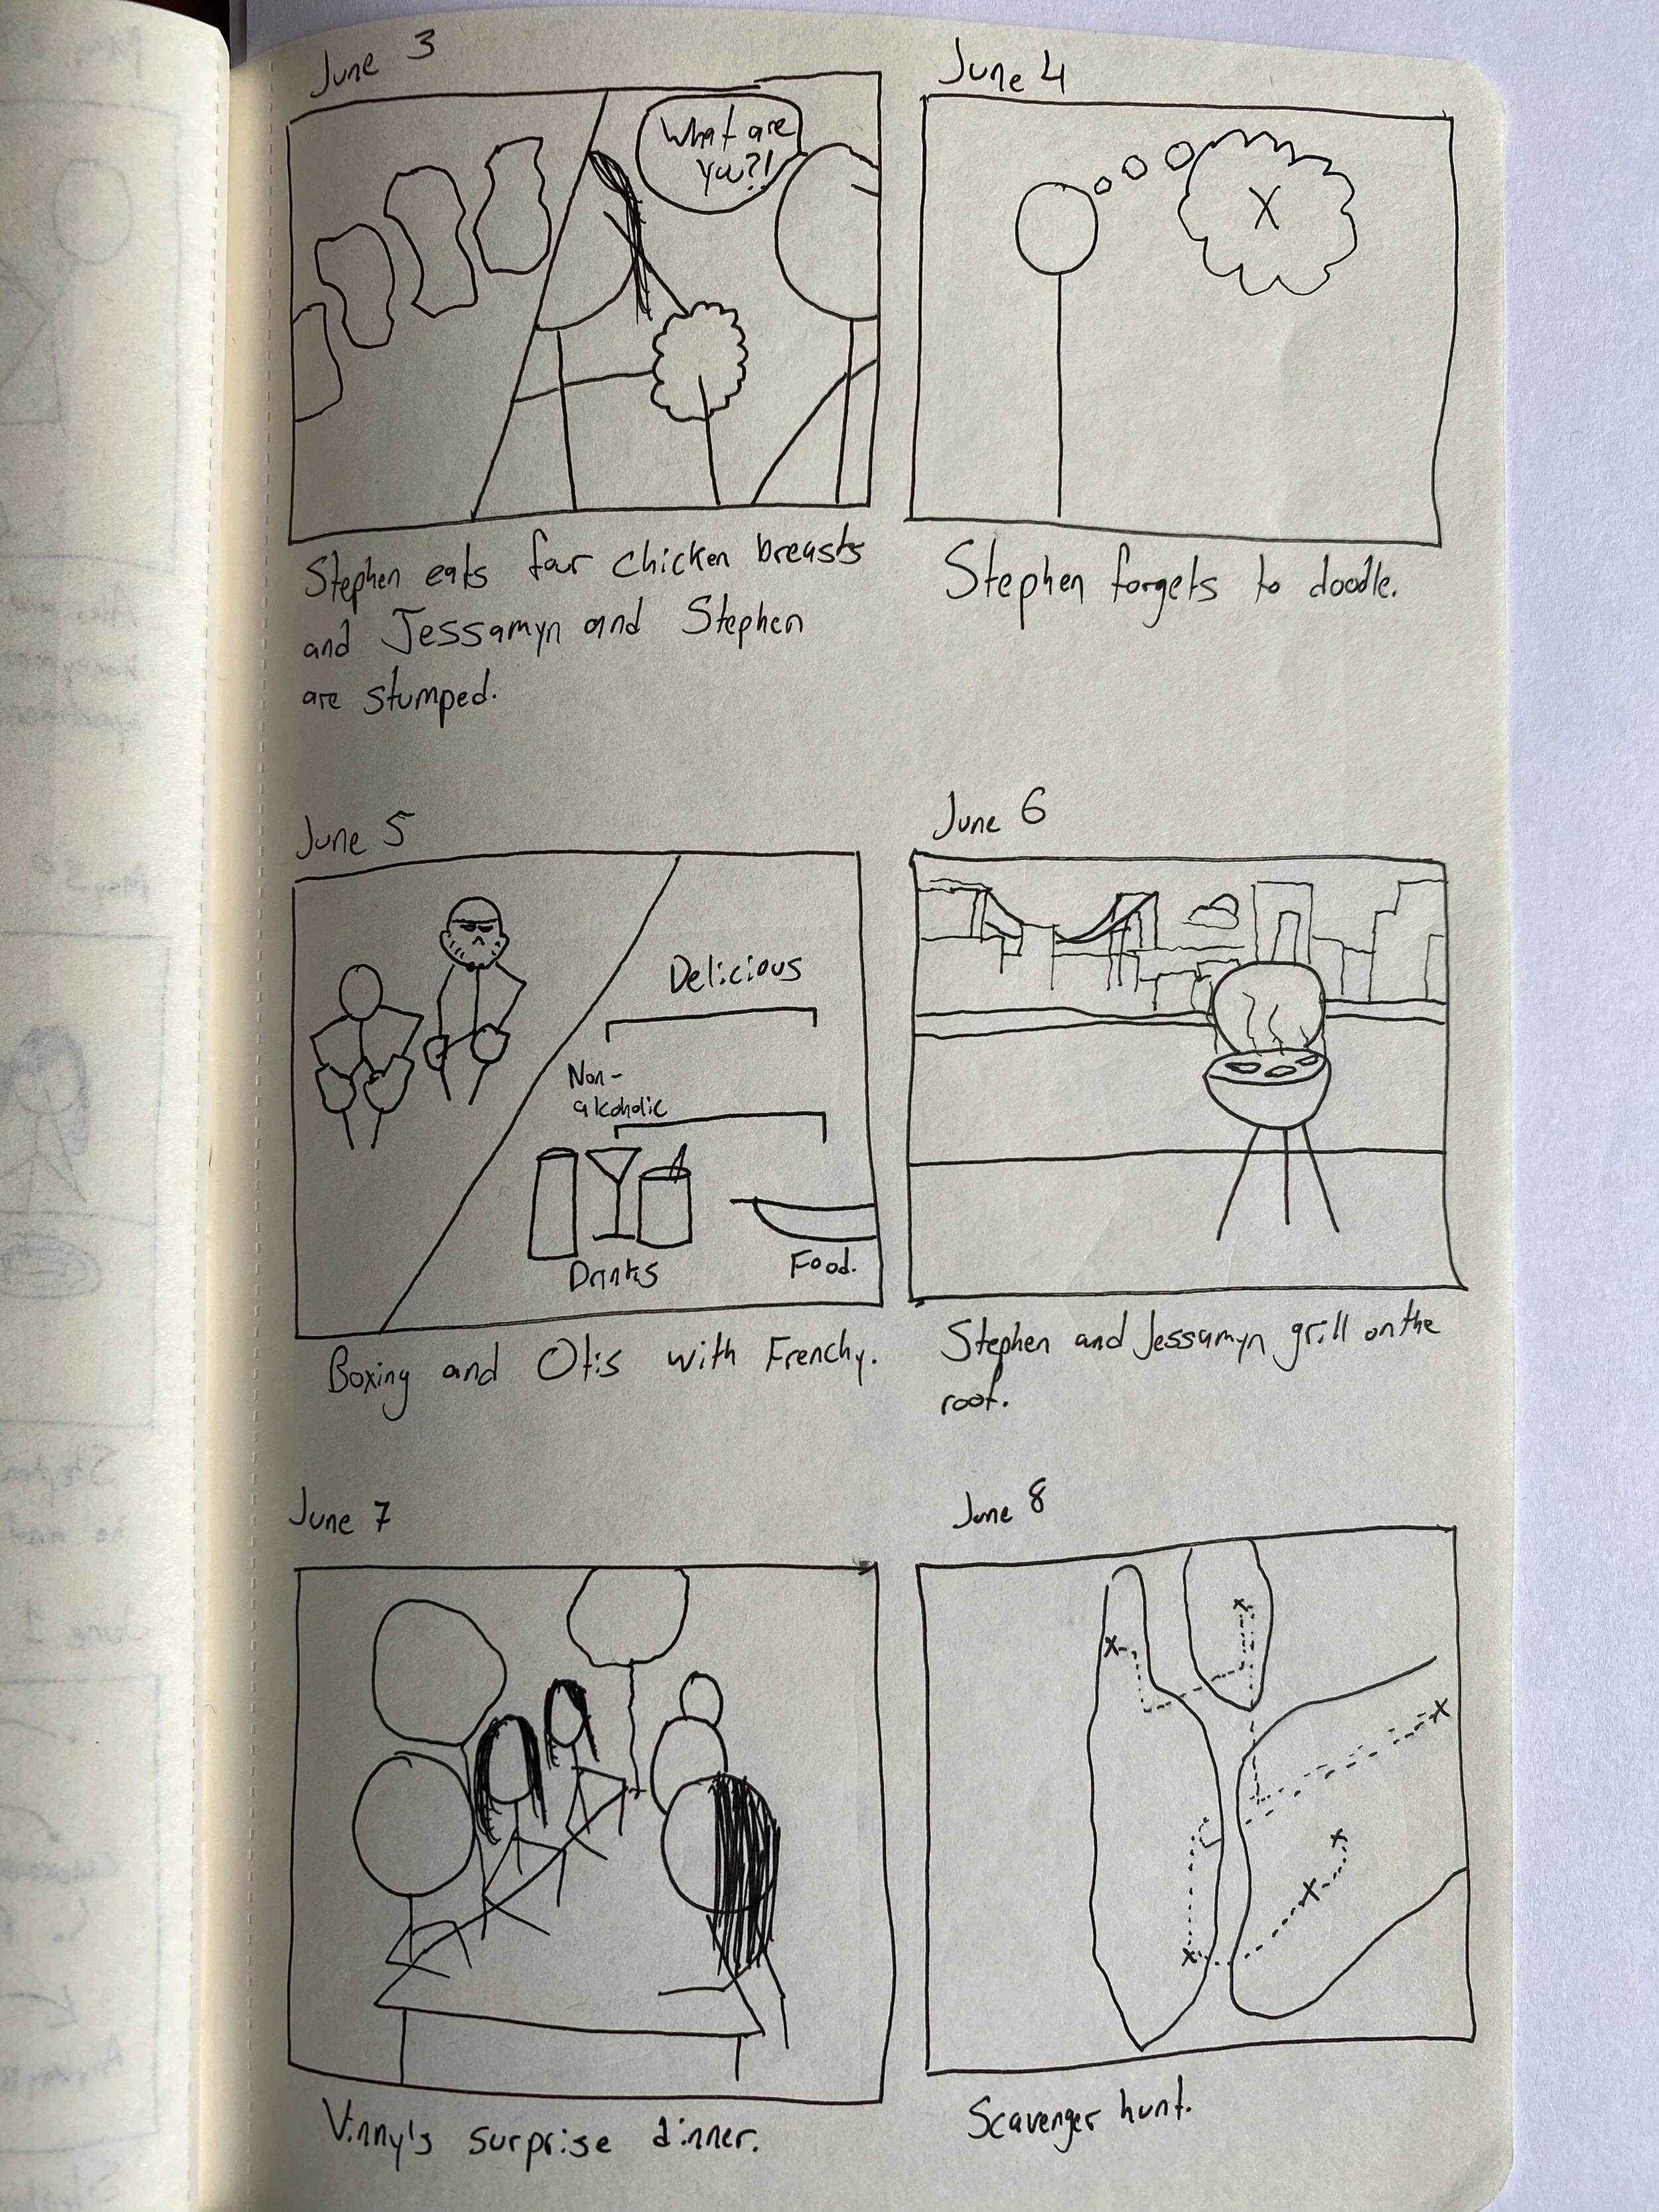 June 3
What are
you?!
Stephen eats four chicken breasts
and Jessamyn and Stephen
are stumped.
June 4
X
Stephen forgets to doodle.
June 5
Delicious
Non-
alcoholic
Drinks
Food.
Boxing and Otis with Frenchy.
June 6
Stephen and Jessamyn grill on the
roof.
June 7
Vinny's surprise dinner.
June 8
x
x
x
x
x
x
Scavenger hunt.